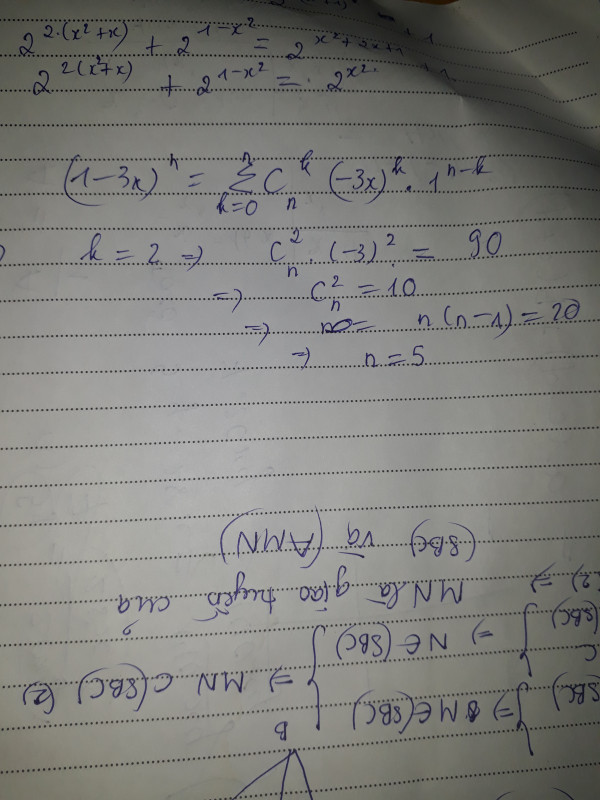 2^{2.(x²+x)} + 2^{1-x²} = 2^{x²+2x+1} + 1
2^{2(x²+x)} + 2^{1-x²} = 2^{x²}
(1-3x)^n = \sum_{k=0}^{n} C_n^k (-3x)^k . 1^{n-k}
k = 2 => C_n^2 . (-3)^2 = 90
=> C_n^2 = 10
=> n(n-1) = 20
=> n = 5
B
(SBC) } => M∈(SBC) } => MN ⊂ (SBC) (2)
(SBC) } => N∈(SBC)
(2) => MN là giao tuyến của
(SBC) và (AMN)